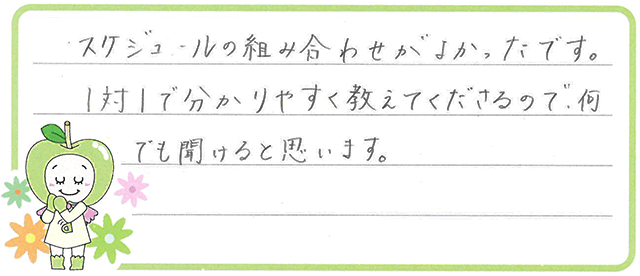 スケジュールの組み合わせがよかったです。
1対1で分かりやすく教えてくださるので、何
でも聞けると思います。